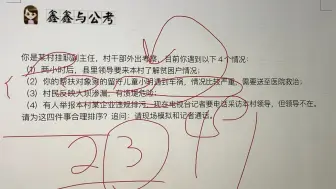 鑫鑫与公考
你是某村挂职副主任，村干部外出考察，目前你遇到以下4个情况：
(1) 两小时后，县里领导要来本村了解贫困户情况；
(2) 你的帮扶对象家的留守儿童小明遇到车祸，情况比较严重，需要送至医院救治；
(3) 村民反映大坝渗漏，有溃堤危险；
(4) 有人举报本村某企业违规排污，现在电视台记者要电话采访本村领导，但领导不在。
请为这四件事合理排序？追问：请现场模拟和记者通话。
2 3 4